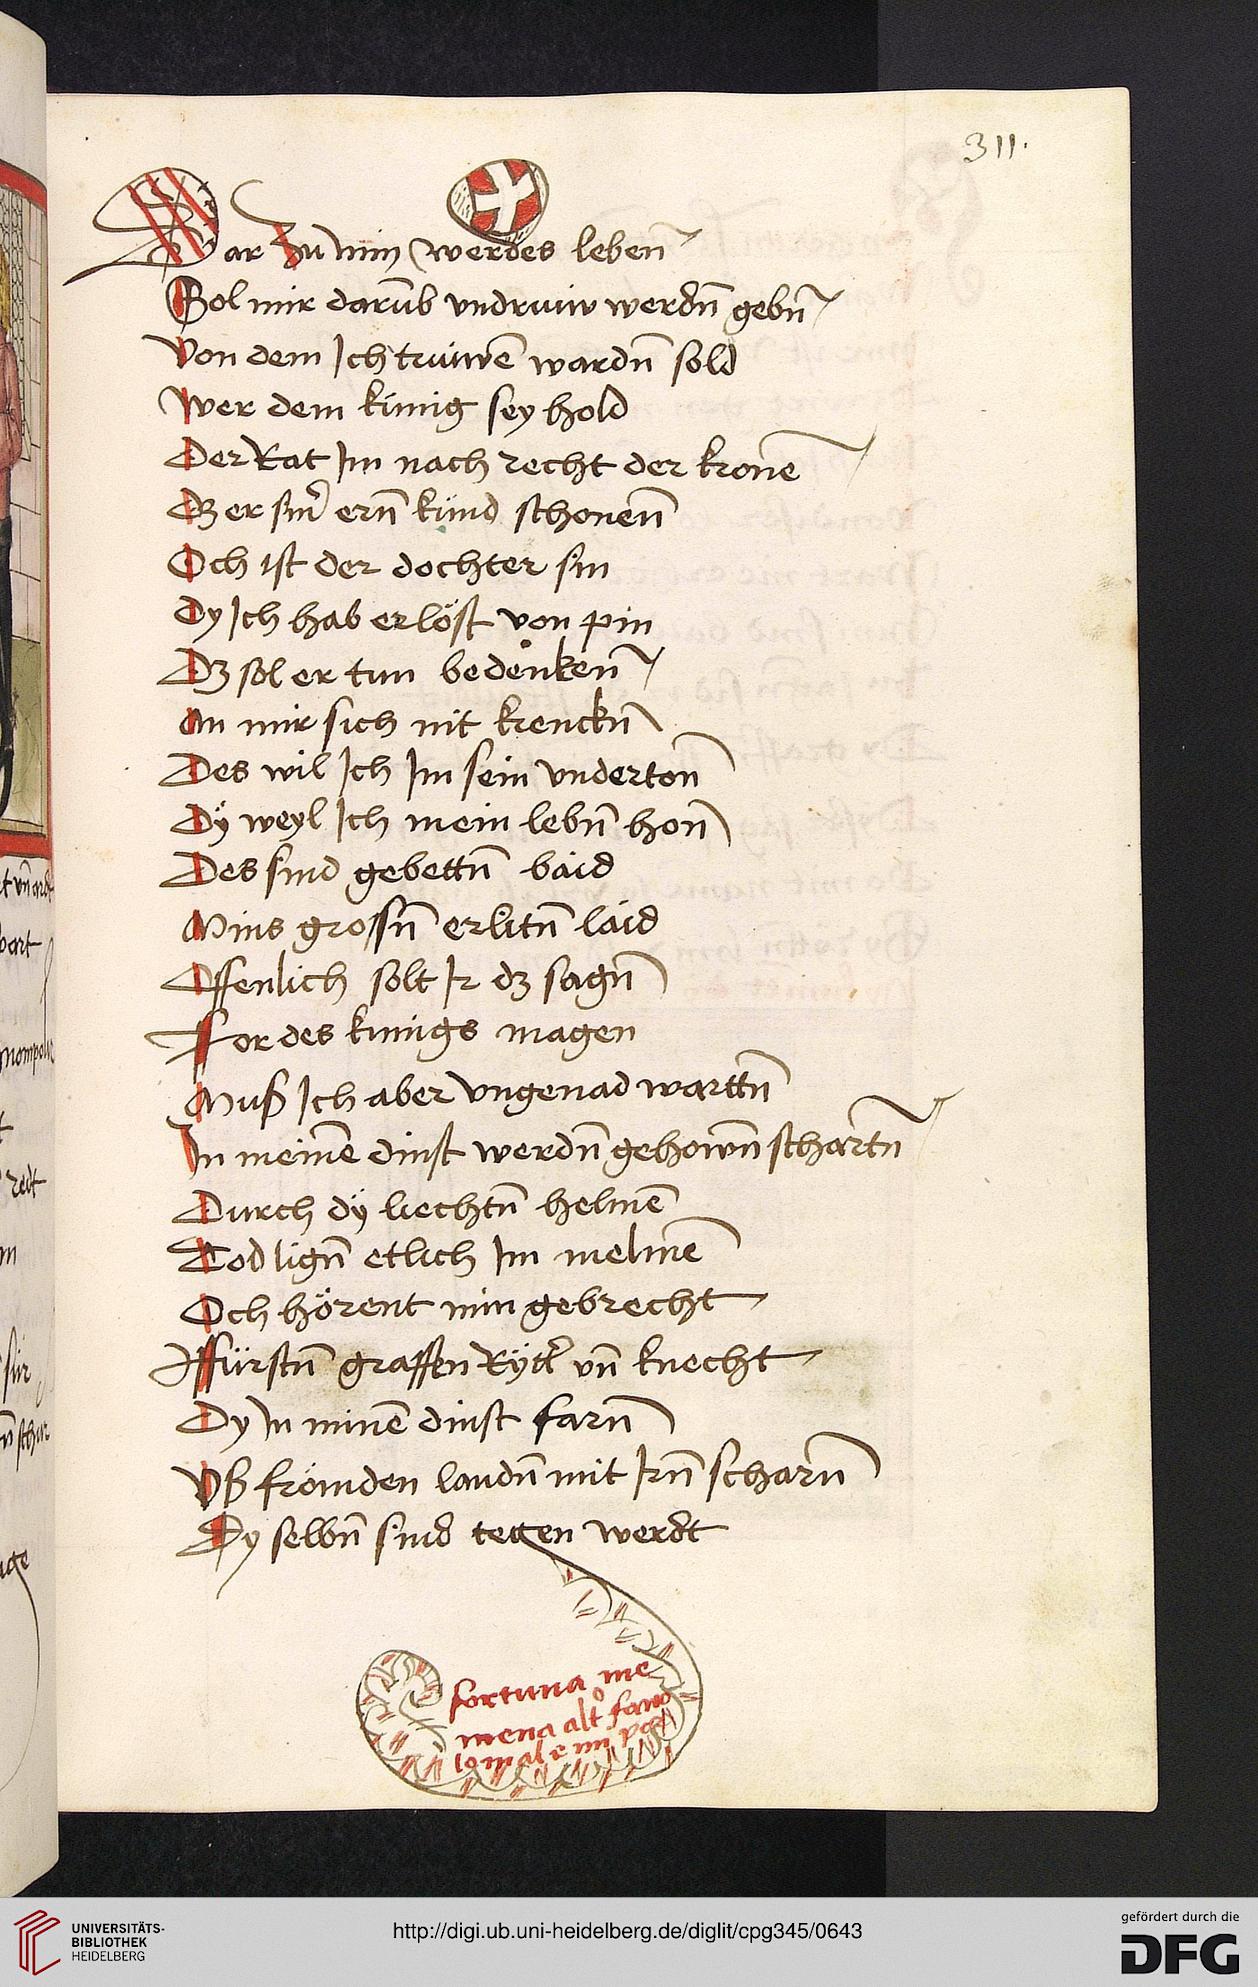 311.
Dar zu min werdes leben
Sol mir darūb vndruiw werdn̄ gebn̄
Von dem Ich truiwē wardn̄ sold
Wer dem kunig sey hold
Der Rat Im nach recht der kronē
Dz er sinr̄ ern̄ kūnd schonen̄
Och ist der dochter sin
Dy Ich hab erlöst von pin
Dz sol er tun bedenken̄
An mir sich nit krenckn̄
Des wil Ich Im sein vnderton̄
Dÿ weyl Ich mein lebn̄ hon̄
Des sind gebettn̄ baid
Mins grossn̄ erlitn̄ laid
Offenlich solt Ir dz sagn̄
For des kunigs magen
Muß Ich aber vngenad wartn̄
In meinē dinst werdn̄ gehown̄ schartn̄
Durch dÿ liechtn̄ helmē
Tod lign̄ etlich Im melmē
Och hörent min gebrecht
Fürstn̄ graffen Rÿtr̄ vn̄ knecht
Dy In minē dinst farn̄
Vß frömden landn̄ mit Irn̄ scharn̄
Dy selbn̄ sind tegen werdt
fortuna me
mena alto
lo mal e mi
UNIVERSITÄTS-
BIBLIOTHEK
HEIDELBERG
http://digi.ub.uni-heidelberg.de/diglit/cpg345/0643
gefördert durch die
DFG